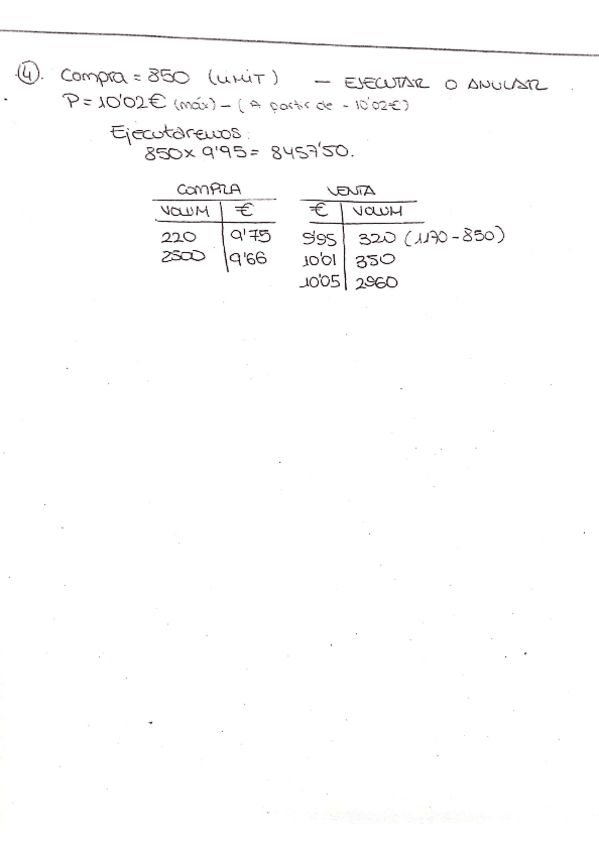 ④. Compra = 850 (LIMIT) – EJECUTAR O ANULAR
P = 10'02€ (máx) – (A partir de – 10'02€)
Ejecutaremos:
850 x 9'95 = 8457'50.
COMPRA VENTA
VOLUM € € VOLUM
220 9'75 9'95 320 (1170 – 850)
2500 9'66 10'01 350
10'05 2960